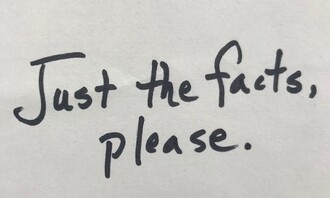 Just the facts,
please.